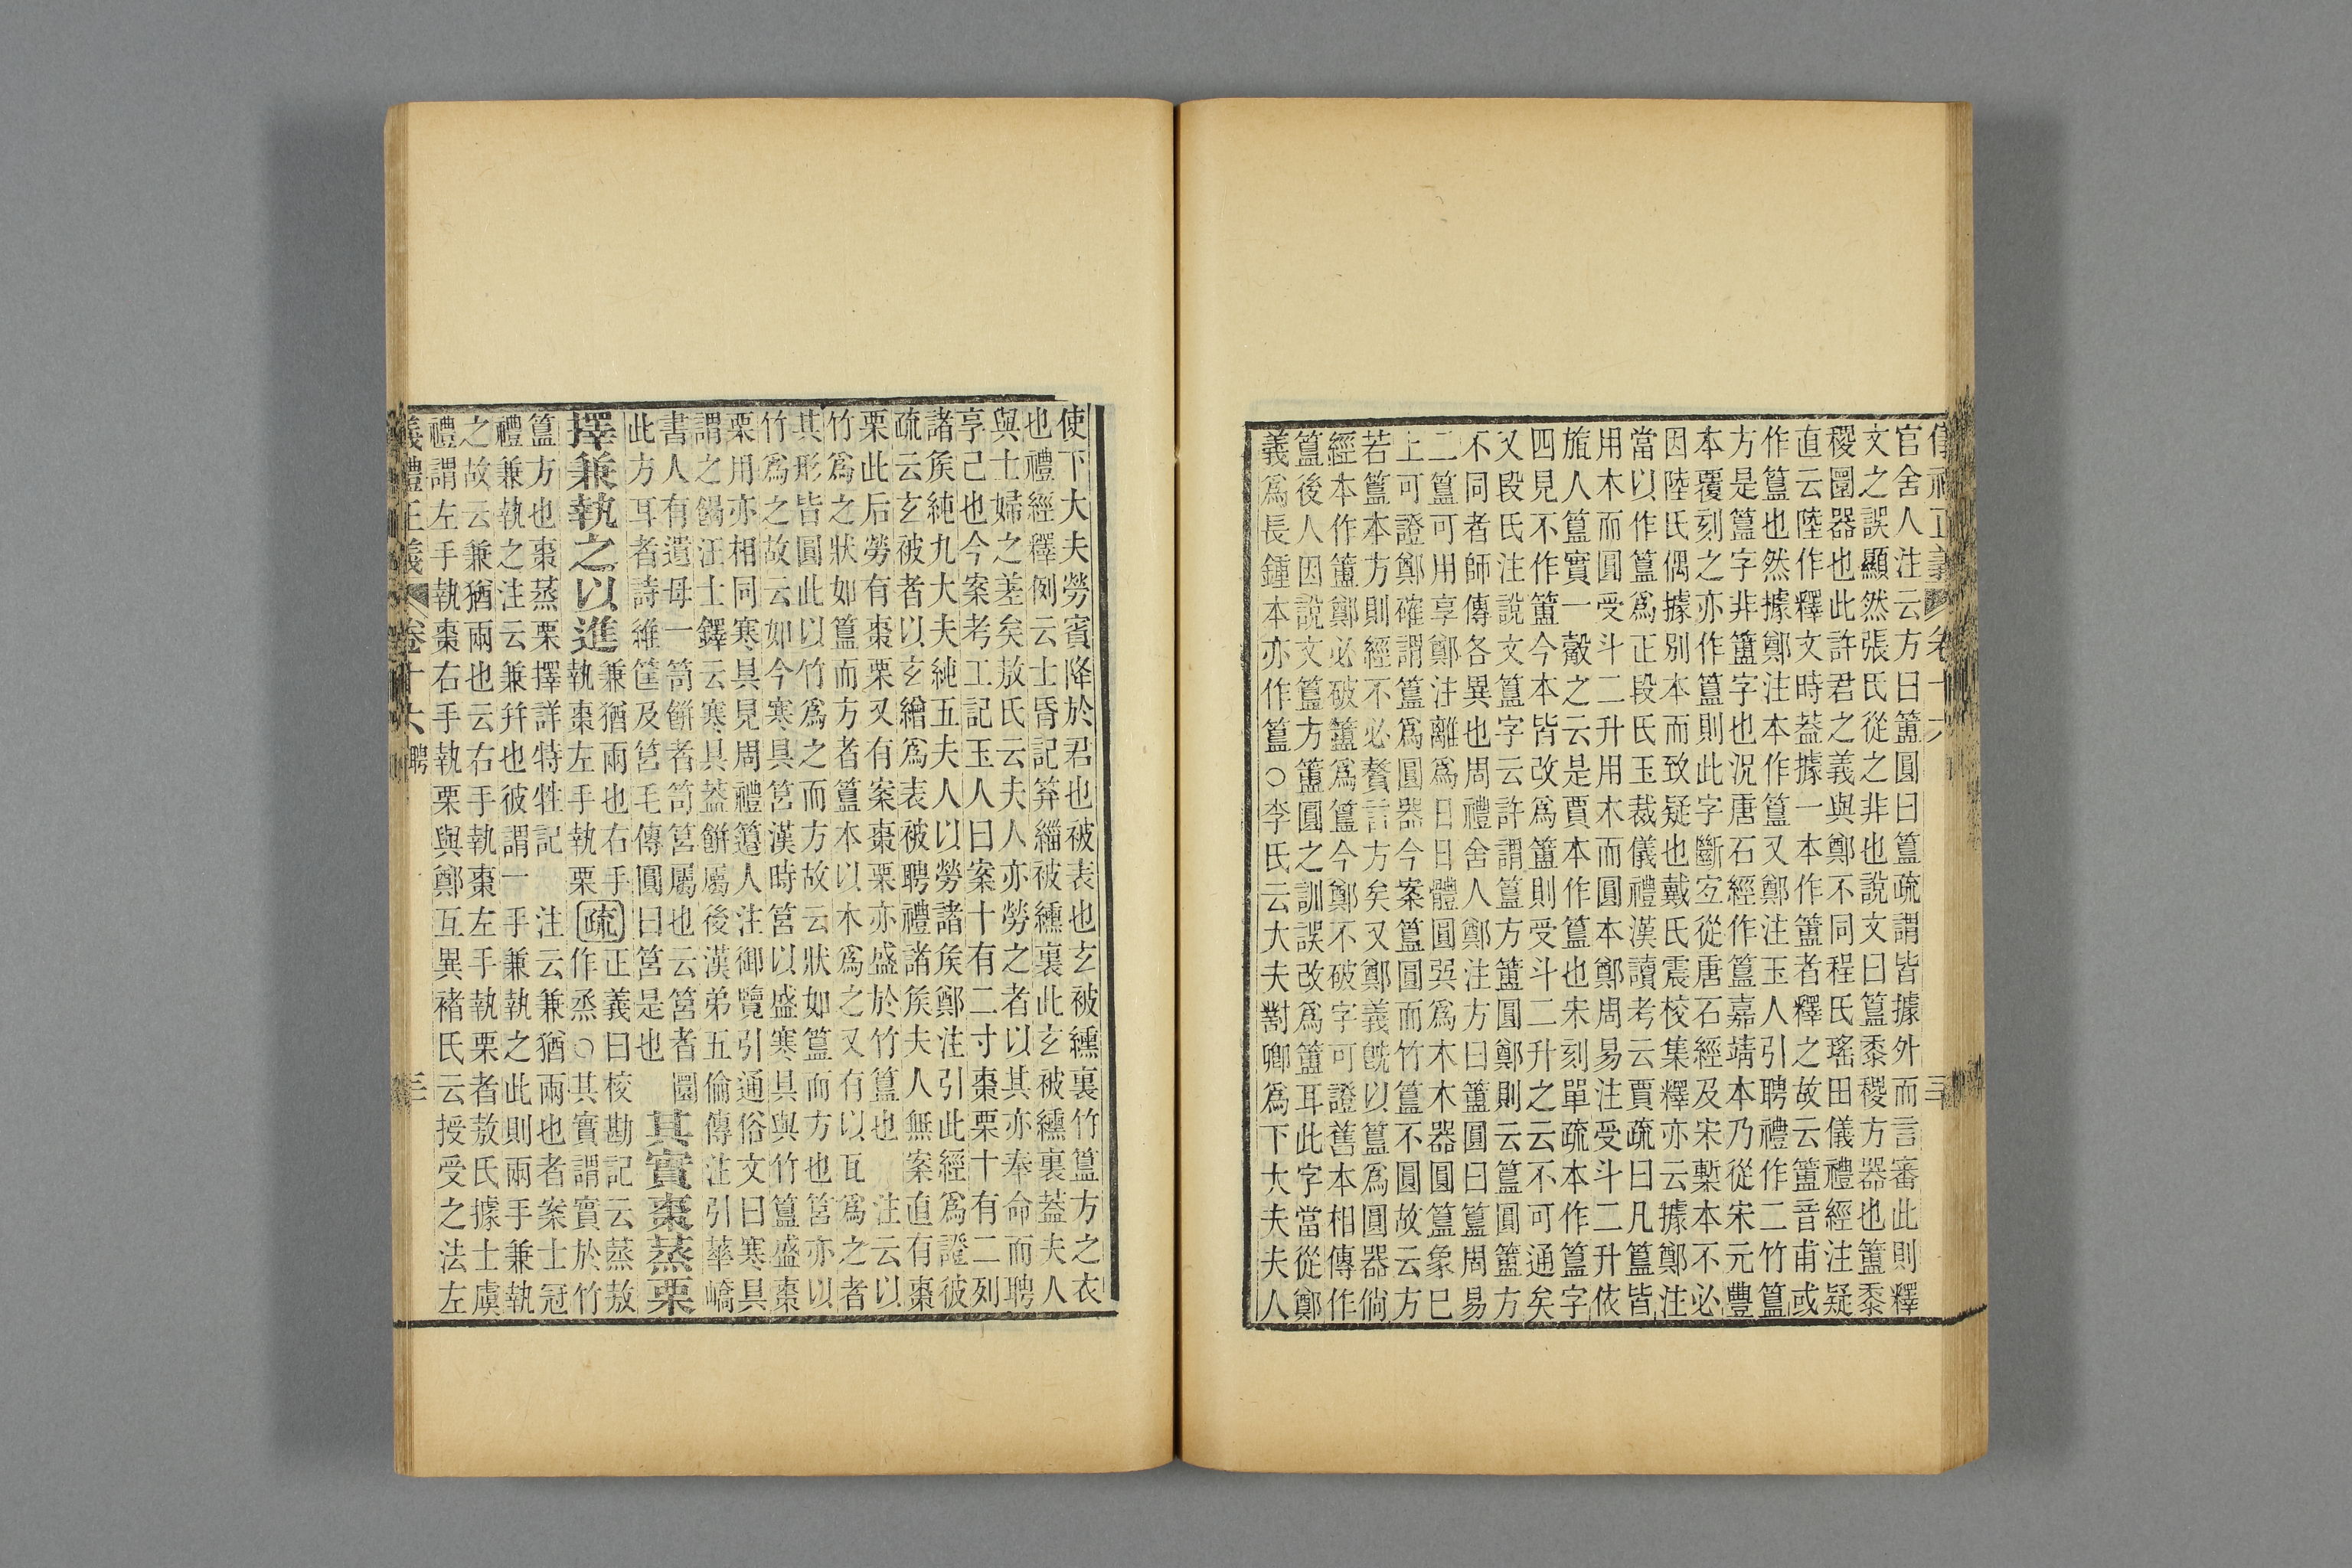 儀禮正義 卷十六 三
官舍人注云方曰簠圓曰簋疏謂皆據外而言審此則釋
文之誤顯然張氏從之非也說文曰簋黍稷方器也簠黍
稷圜器也此許君之義與鄭不同程氏瑤田儀禮經注疑
直云陸作釋文時葢據一本作簠者釋之故云簠音甫或
作簋也然據鄭注本作簋又鄭注玉人引聘禮作二竹簋
方是簋字非簠字也況唐石經作簋嘉靖本乃從宋元豐
本覆刻之亦作簋則此字斷宐從唐石經及宋槧本不必
因陸氏偶據別本而致疑也戴氏震校集釋亦云據鄭注
當以作簋爲正段氏玉裁儀禮漢讀考云賈疏曰凡簋皆
用木而圓受斗二升用木而圓本鄭周易注受斗二升依
旊人簋實一觳之云是賈本作簋也宋刻單疏本作簋字
四見不作簠今本皆改爲簠則受斗二升之云不可通矣
又段氏注說文簋字云許謂簋方簠圓鄭則云簋圓簠方
不同者師傳各異也周禮舍人鄭注方曰簠圓曰簋周易
二簋可用享鄭注離爲日日體圓巽爲木木器圓簋象巳
上可證鄭確謂簋爲圓器今案簋圓而竹簋不圓故云方
若簋本方則經不必贅言方矣又鄭義旣以簋爲圓器倘
經本作簠鄭必破簠爲簋今鄭不破字可證舊本相傳作
簋後人因說文簋方簠圓之訓誤改爲簠耳此字當從鄭
義爲長鍾本亦作簋○李氏云大夫對卿爲下大夫夫人
使下大夫勞賓降於君也被表也玄被纁裏竹簋方之衣
也禮經釋例云士昏記笲緇被纁裏此玄被纁裏葢夫人
與士婦之差矣敖氏云夫人亦勞之者以其亦奉命而聘
享己也今案考工記玉人曰案十有二寸棗栗十有二列
諸矦純九大夫純五夫人以勞諸矦鄭注引此經爲證彼
疏云玄被者以玄繒爲表被聘禮諸矦夫人無案直有棗
栗此后勞有棗栗又有案棗栗亦盛於竹簋也 注云以
竹爲之狀如簋而方者簋本以木爲之又有以瓦爲之者
其形皆圓此以竹爲之而方故云狀如簋而方也筥亦以
竹爲之故云如今寒具筥漢時筥以盛寒具與竹簋盛棗
栗用亦相同寒具見周禮籩人注御覽引通俗文曰寒具
謂之餲汪士鐸云寒具葢餅屬後漢弟五倫傳注引華嶠
書人有遺母一笥餅者笥筥屬也云筥者圜
此方耳者詩維筐及筥毛傳圓曰筥是也 其實棗蒸栗
擇兼執之以進 兼猶兩也右手執棗左手執栗 疏 正義曰校勘記云蒸敖作烝○其實謂實於竹
簋方也棗蒸栗擇詳特牲記 注云兼猶兩也者案士冠
禮兼執之注云兼幷也彼謂一手兼執之此則兩手兼執
之故云兼猶兩也云右手執棗左手執栗者敖氏據士虞
禮謂左手執棗右手執栗與鄭互異褚氏云授受之法左
儀禮正義 卷十六 聘 三